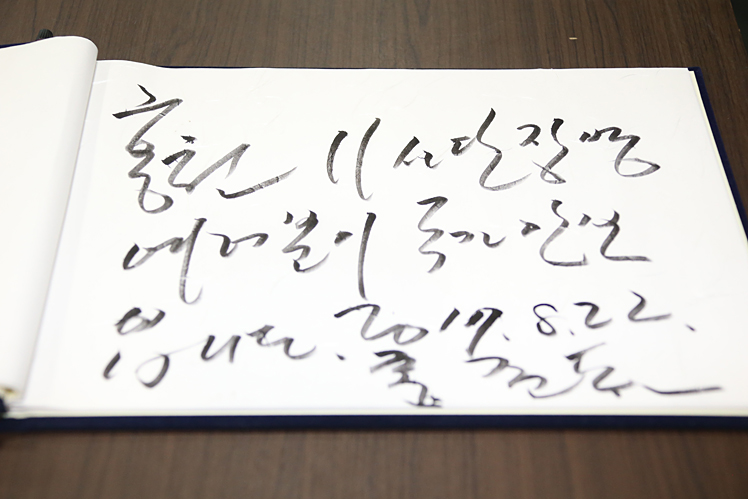 홍천 11사단장병
여러분이 국가안보
입니다. 2017. 8.22.